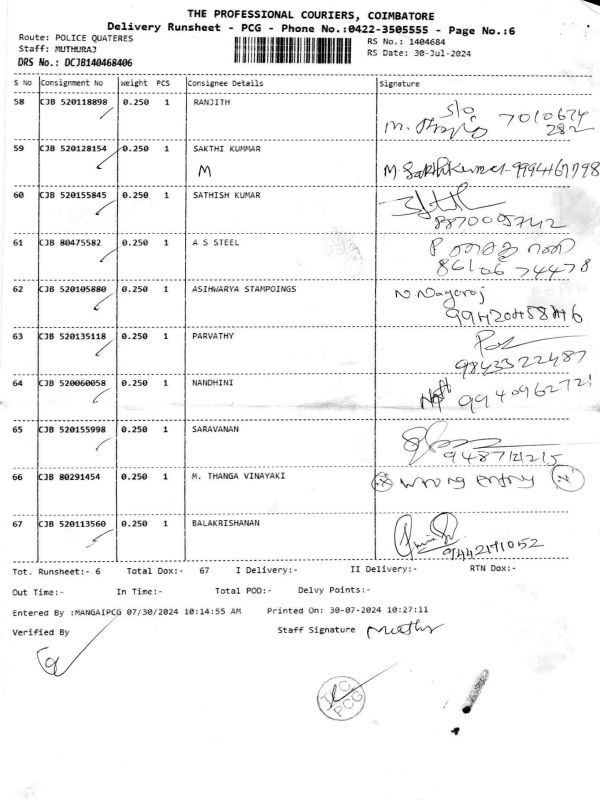 THE PROFESSIONAL COURIERS, COIMBATORE
Delivery Runsheet - PCG - Phone No.:0422-3505555 - Page No.:6
Route: POLICE QUATERES
RS No.: 1404684
Staff: MUTHURAJ
RS Date: 30-Jul-2024
DRS No.: DCJB140468406
S No Consignment No Weight PCS Consignee Details Signature
58 CJB 520118898 0.250 1 RANJITH
S/o 7010674
282
59 CJB 520128154 0.250 1 SAKTHI KUMMAR
M M. Sakthikumar-9994467798
60 CJB 520155845 0.250 1 SATHISH KUMAR
8870009742
61 CJB 80475582 0.250 1 A S STEEL
86106 74478
62 CJB 520105880 0.250 1 ASIHWARYA STAMPOINGS N. Nagaraj
63 CJB 520135118 0.250 1 PARVATHY
9843322487
64 CJB 520060058 0.250 1 NANDHINI
9940962721
65 CJB 520155998 0.250 1 SARAVANAN
9487121215
66 CJB 80291454 0.250 1 M. THANGA VINAYAKI wrong entry
67 CJB 520113560 0.250 1 BALAKRISHANAN
Tot. Runsheet:- 6 Total Dox:- 67 I Delivery:- II Delivery:- RTN Dox:-
Out Time:- In Time:- Total POD:- Delvy Points:-
Entered By :MANGAIPCG 07/30/2024 10:14:55 AM Printed On: 30-07-2024 10:27:11
Verified By Staff Signature
TPC
PCG